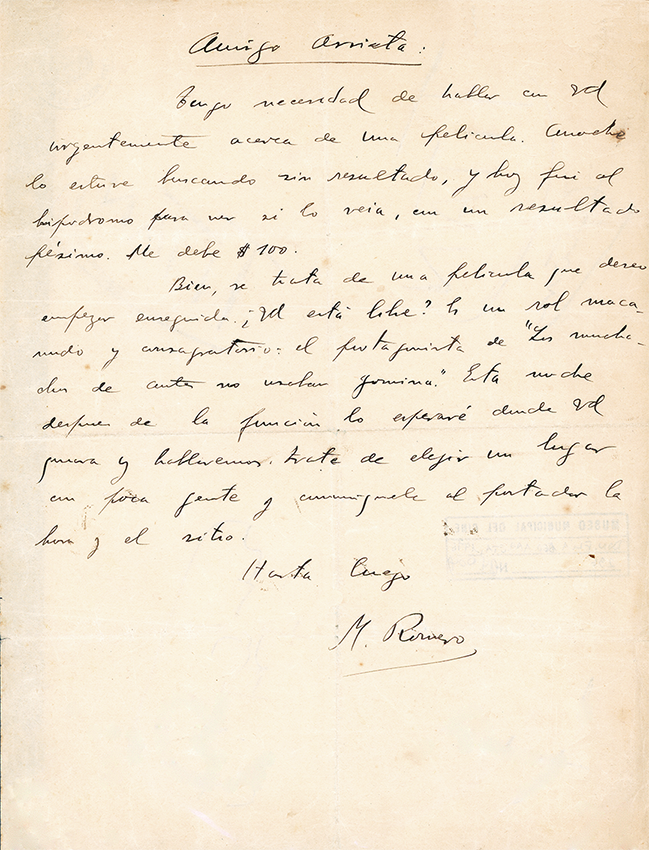 Amigo Arrieta:
Tengo necesidad de hablar con Vd
urgentemente acerca de una pelicula. Anoche
lo estuve buscando sin resultado, y hoy fui al
hipodromo para ver si lo veia, con un resultado
pésimo. Me debe $ 100.
Bien, se trata de una pelicula que deseo
empezar enseguida. ¿Vd está libre? Es un rol maca-
nudo y consagratorio: el protagonista de "Los mucha-
chos de antes no usaban gomina." Esta noche
despues de la función lo esperaré donde Vd
quiera y hablaremos. Trata de elejir un lugar
con poca gente y comuniquele al portador la
hora y el sitio.
Hasta luego
M. Romero
MUSEO MUNICIPAL DEL CINE